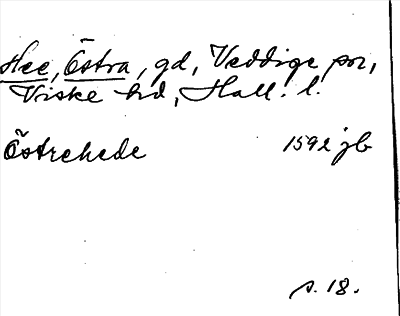 Hee, Östra, gd, Veddige sn,
Viske hd, Hall. l.
Östrehede 1592 jb
s. 18.